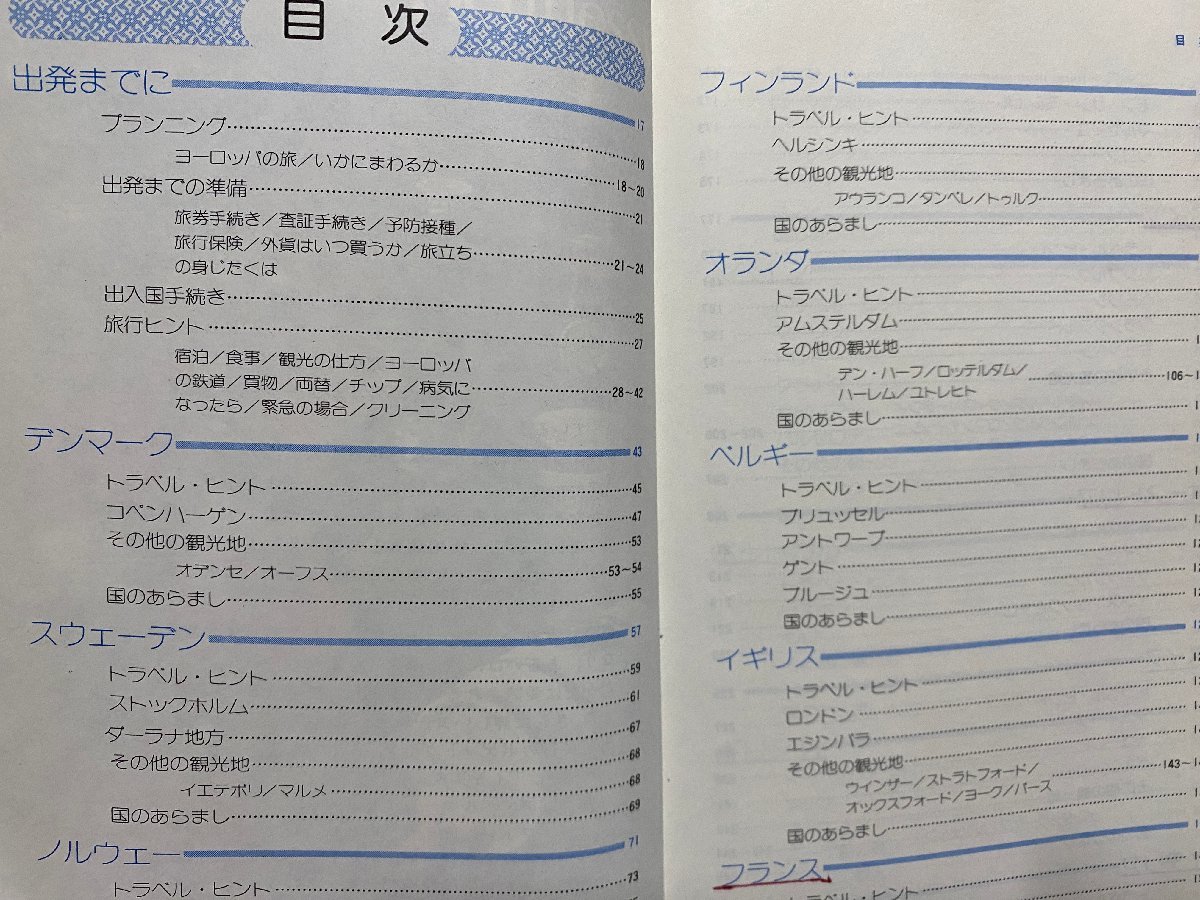 目次
出発までに 17
プランニング 18
ヨーロッパの旅／いかにまわるか 18～20
出発までの準備 21
旅券手続き／査証手続き／予防接種／
旅行保険／外貨はいつ買うか／旅立ち 21～24
の身じたくは
出入国手続き 25
旅行ヒント 27
宿泊／食事／観光の仕方／ヨーロッパ
の鉄道／買物／両替／チップ／病気に 28～42
なったら／緊急の場合／クリーニング
デンマーク 43
トラベル・ヒント 45
コペンハーゲン 47
その他の観光地 53
オデンセ／オーフス 53～54
国のあらまし 55
スウェーデン 57
トラベル・ヒント 59
ストックホルム 61
ダーラナ地方 67
その他の観光地 68
イエテボリ／マルメ 68
国のあらまし 69
ノルウェー 71
トラベル・ヒント 73
目
フィンランド
トラベル・ヒント
ヘルシンキ
その他の観光地
アウランコ／タンペレ／トゥルク
国のあらまし
オランダ
トラベル・ヒント
アムステルダム
その他の観光地
デン・ハーフ／ロッテルダム／ 106～1
ハーレム／ユトレヒト
国のあらまし
ベルギー
トラベル・ヒント
ブリュッセル
アントワープ
ゲント
ブルージュ
国のあらまし
イギリス
トラベル・ヒント
ロンドン
エジンバラ
その他の観光地
ウインザー／ストラトフォード／ 143～14
オックスフォード／ヨーク／バース
国のあらまし
フランス
トラベル・ヒント